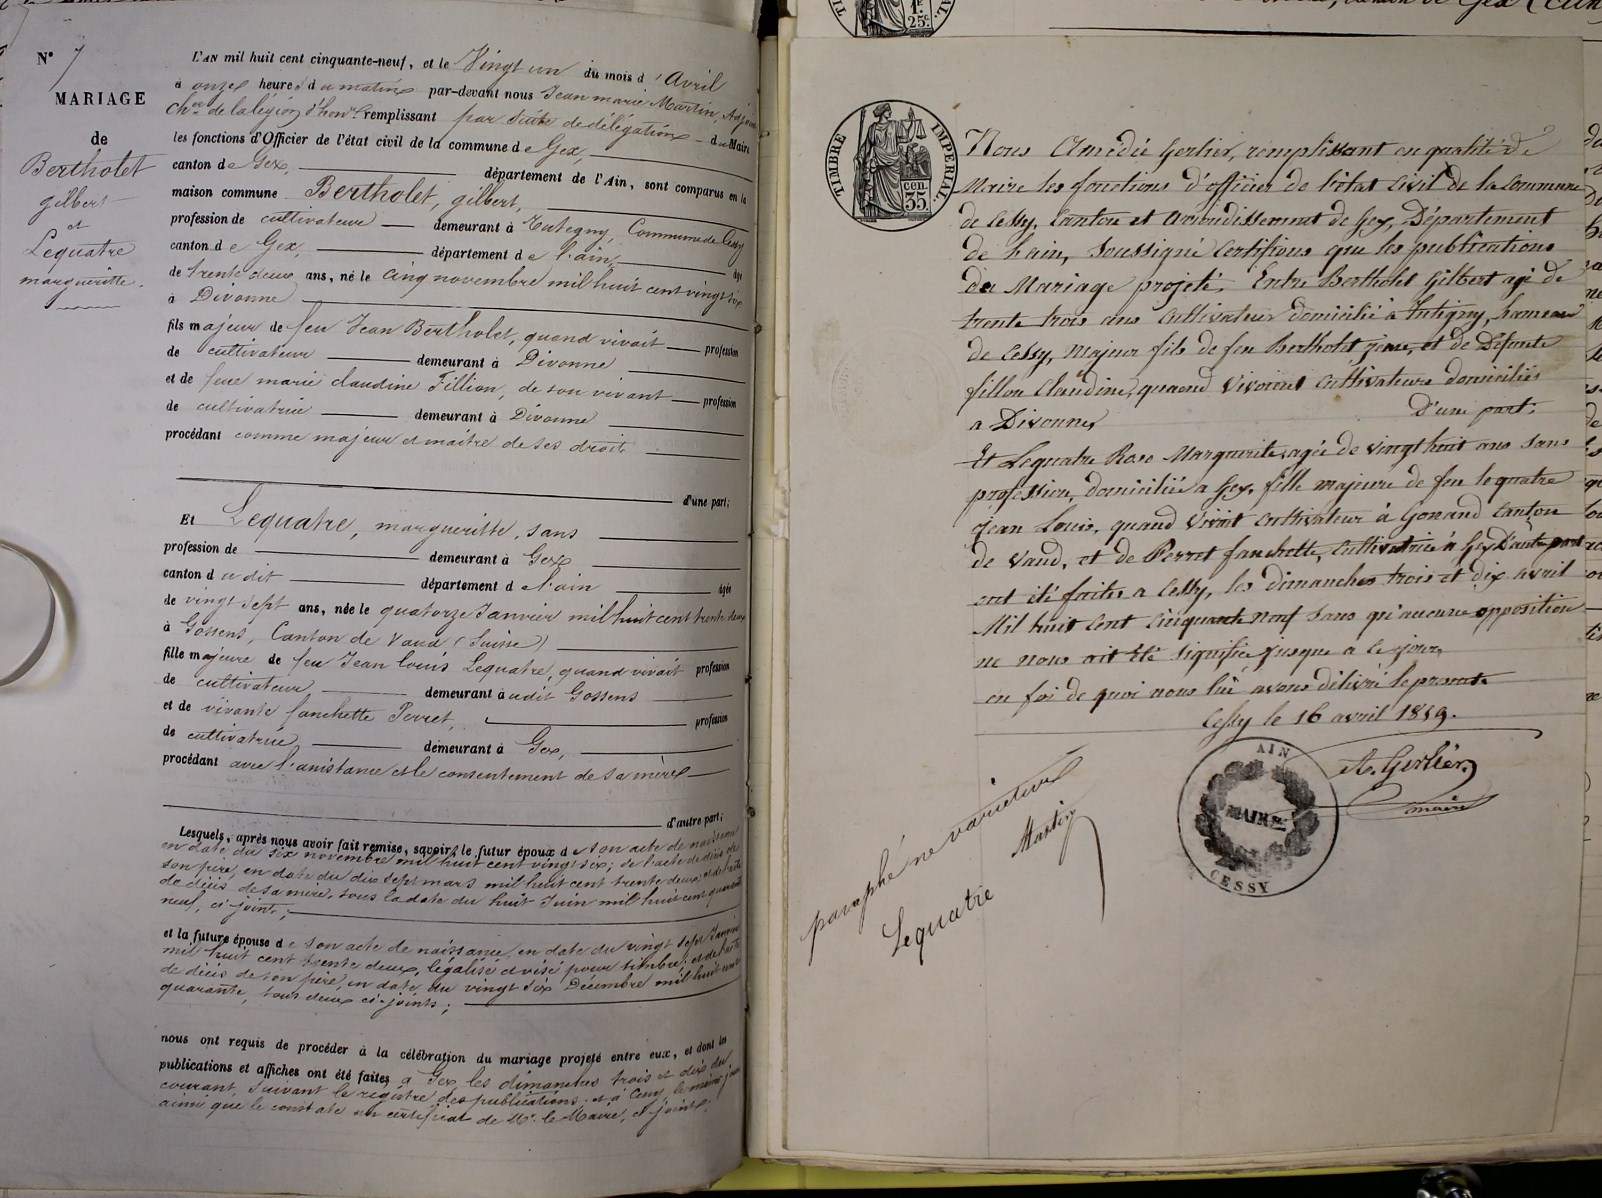 N° 7
MARIAGE
de
Bertholet
gilbert
et
Lequatre
margueritte.
L'AN mil huit cent cinquante-neuf, et le Vingt un du mois d'Avril
à onze heures du matin par-devant nous Jean marie Martin, Adjoint
Chev. de la légion d'honr. remplissant par suite de délégation du Maire
les fonctions d'Officier de l'état civil de la commune de Gex,
canton de Gex, département de l'Ain, sont comparus en la
maison commune Bertholet, gilbert,
profession de cultivateur demeurant à Tutegny, Commune de Cessy
canton de Gex, département de l'ain, âgé
de trente deux ans, né le cinq novembre mil huit cent vingt six
à Divonne
fils majeur de feu Jean Bertholet, quand vivait profession
de cultivateur demeurant à Divonne
et de feue marie claudine Fillion, de son vivant profession
de cultivatrice demeurant à Divonne
procédant comme majeur et maître de ses droits
d'une part;
Et Lequatre, margueritte, sans
profession de demeurant à Gex
canton dudit département de l'ain âgée
de vingt sept ans, née le quatorze Janvier mil huit cent trente deux
à Gossens, Canton de Vaud (Suisse)
fille majeure de feu Jean Louis Lequatre, quand vivait profession
de cultivateur demeurant audit Gossens
et de vivante fanchette Perret, profession
de cultivatrice demeurant à Gex,
procédant avec l'assistance et le consentement de sa mère
d'autre part;
Lesquels, après nous avoir fait remise, savoir: le futur époux de son acte de naissance
en date du six novembre mil huit cent vingt six; de l'acte de décès de
son père, en date du dix sept mars mil huit cent trente deux, et de l'acte
de décès de sa mère, sous la date du huit Juin mil huit cent quarante
neuf, ci-joints;
et la future épouse de son acte de naissance, en date du vingt sept Janvier
mil huit cent trente deux, légalisé et visé pour timbre; et de l'acte
de décès de son père, en date du vingt six Décembre mil huit cent
quarante, tous deux ci-joints;
nous ont requis de procéder à la célébration du mariage projeté entre eux, et dont les
publications et affiches ont été faites à Gex les dimanches trois et dix du
courant suivant le registre des publications; et à Cessy, le même jour
ainsi que le constate un certificat de Mr. le Maire, ci-joint;
1 F.
25 C.
TIMBRE IMPERIAL.
cen.
35.
Nous Amédée Gerlier, remplissant en qualité de
Maire les fonctions d'officier de l'état civil de la Commune
de Cessy, Canton et Arrondissement de Gex, Département
de L'ain, Soussigné Certifions que les publications
du Mariage projeté, Entre Bertholet Gilbert agé de
trente trois ans Cultivateur domicilié à Tutigny, hameau
de Cessy, Majeur fils de feu Bertholet jean, et de Défunte
fillon Claudine, quand Vivoient Cultivateurs domiciliés
a Divonne, D'une part.
Et Lequatre Rose Marguerite, agée de vingt huit ans sans
profession, domiciliée a Gex, fille majeure de feu lequatre
jean Louis, quand Vivoit Cultivateur à Gonand Canton
de Vaud, et de Perret fanchette, Cultivatrice à Gex D'autre part
ont été faites a Cessy, les dimanches trois et dix avril
Mil huit Cent Cinquante neuf Sans qu'aucune opposition
ne nous ait été signifiée jusque a ce jour,
en foi de quoi nous lui avons délivré le présent.
Cessy le 16 avril 1859.
A. Gerlier,
maire
AIN
MAIRIE
CESSY
paraphé ne varietur
Martin
Lequatre